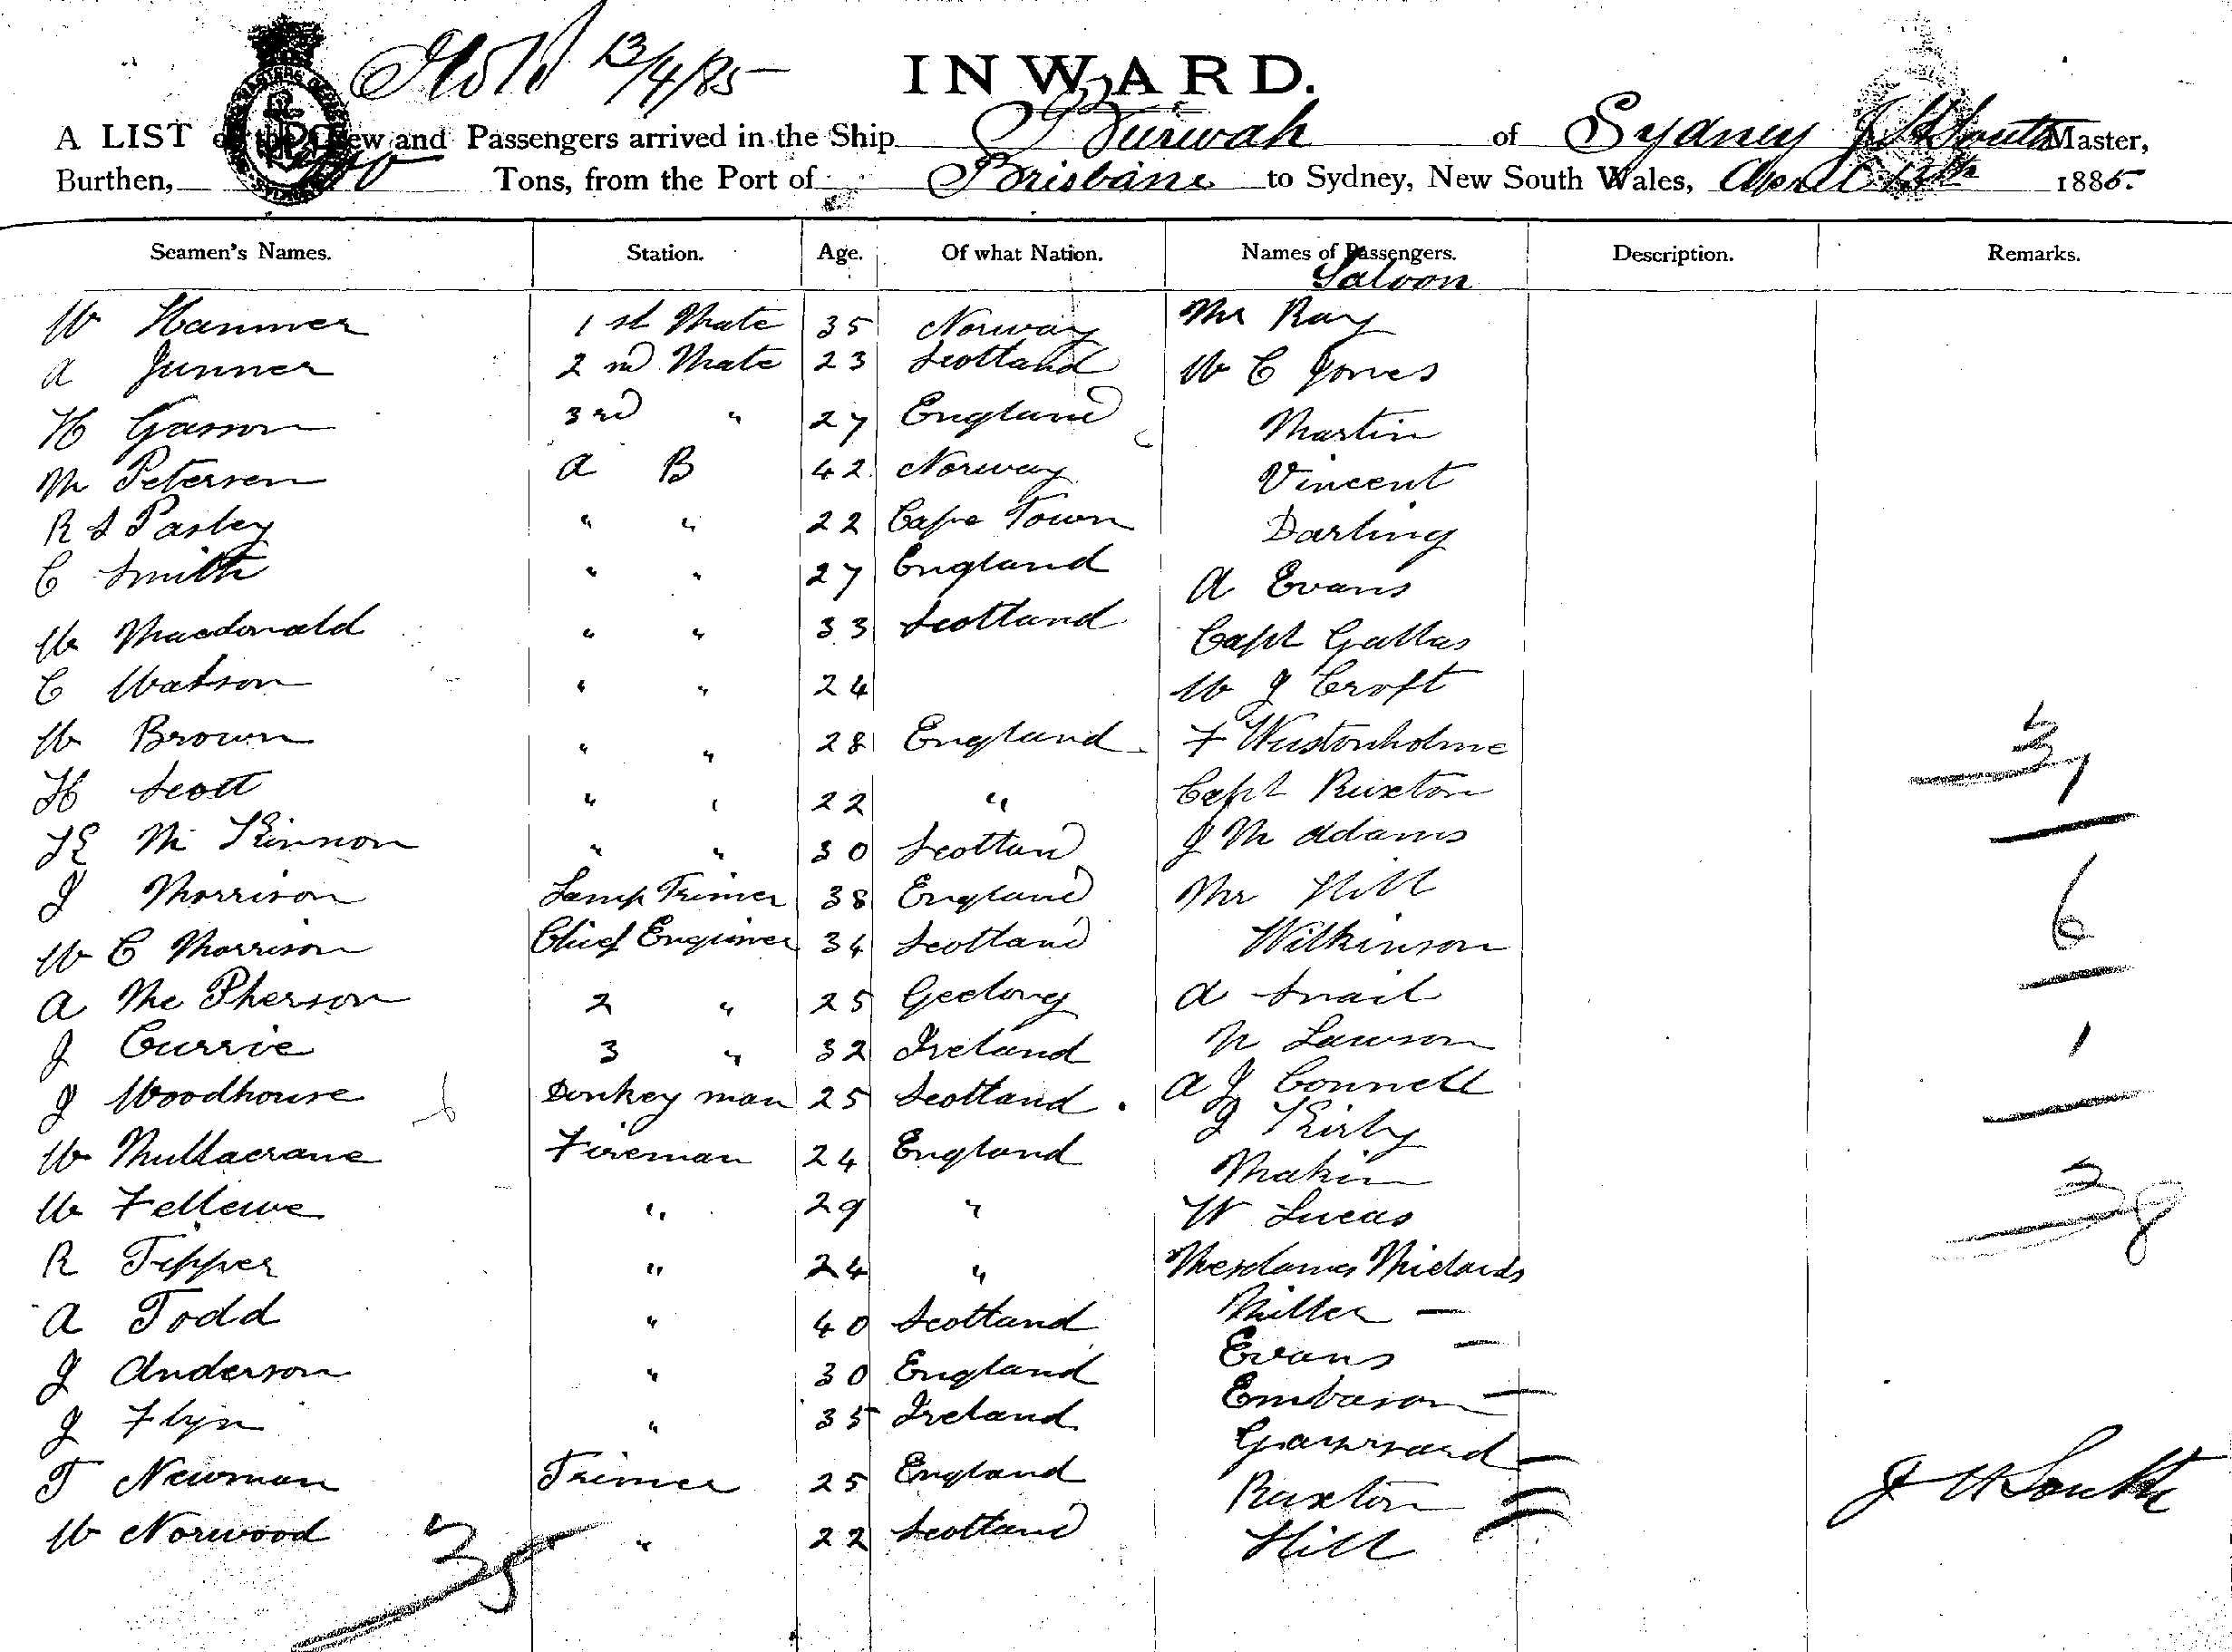 13/4/85
INWARD.
A LIST of the Crew and Passengers arrived in the Ship Burwah of Sydney J H South Master,
Burthen, Tons, from the Port of Brisbane to Sydney, New South Wales, April 13th 1885.
Seamen's Names. Station. Age. Of what Nation. Names of Passengers. Description. Remarks.
Saloon
W Hammer 1st Mate 35 Norway Mr Ray
A Junner 2nd Mate 23 Scotland W C Jones
H Gasson 3rd " 27 England Martin
M Petersen A B 42 Norway Vincent
R S Pasley " " 22 Cape Town Darling
C Smith " " 27 England A Evans
W Macdonald " " 33 Scotland Capt Gallas
C Watson " " 24 W J Croft
W Brown " " 28 England F Wustonholme
H Scott " " 22 " Capt Ruxton
31
M Kinnon " " 30 Scotland J M Adams
J Morrison Lamp Trimer 38 England Mr Hill
6
W C Morrison Chief Engineer 34 Scotland Wilkinson
A Mc Pherson 2 " 25 Geelong A Snail
J Currie 3 " 32 Ireland N Lawson
1
J Woodhouse Donkey man 25 Scotland A J Connell
J Kirby
W Mullacrane Fireman 24 England Makin
W Fellewe " 29 " W Lucas
38
R Tipper " 24 " Mesdames
A Todd " 40 Scotland Miller —
J Anderson " 30 England Evans —
J Flyn " 35 Ireland Embason —
T Newman Trimer 25 England Ruxton
W Norwood " 22 Scotland Hill
J H South
38